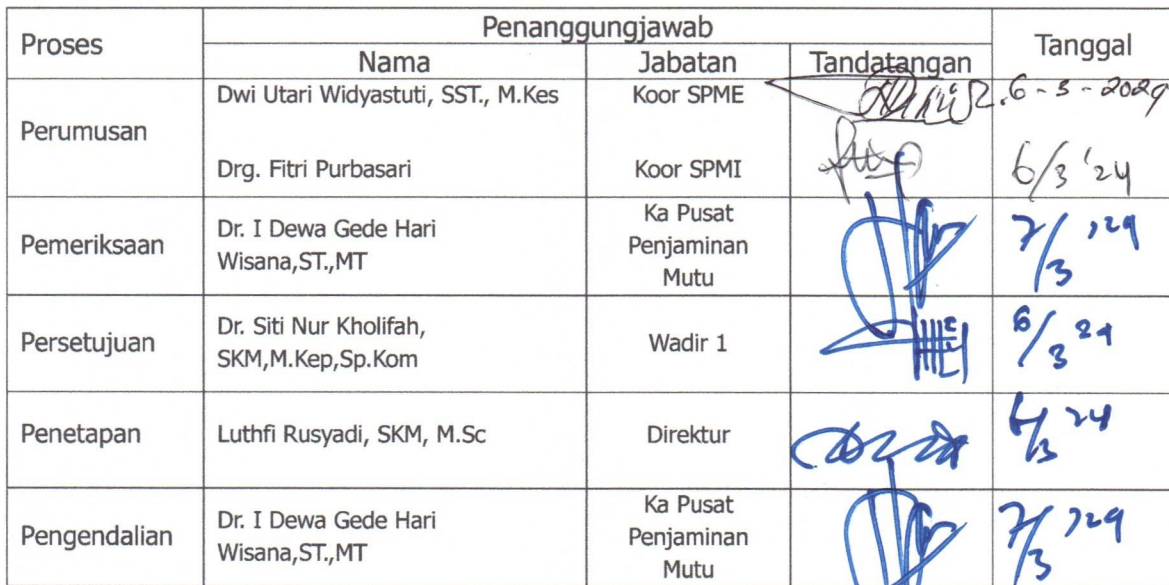 Proses Penanggungjawab Tanggal
Nama Jabatan Tandatangan
Perumusan Dwi Utari Widyastuti, SST., M.Kes Koor SPME 6-3-2024
Drg. Fitri Purbasari Koor SPMI 6/3 '24
Pemeriksaan Dr. I Dewa Gede Hari Wisana,ST.,MT Ka Pusat Penjaminan Mutu 7/3 '24
Persetujuan Dr. Siti Nur Kholifah, SKM,M.Kep,Sp.Kom Wadir 1 6/3 24
Penetapan Luthfi Rusyadi, SKM, M.Sc Direktur 6/3 '24
Pengendalian Dr. I Dewa Gede Hari Wisana,ST.,MT Ka Pusat Penjaminan Mutu 7/3 '24